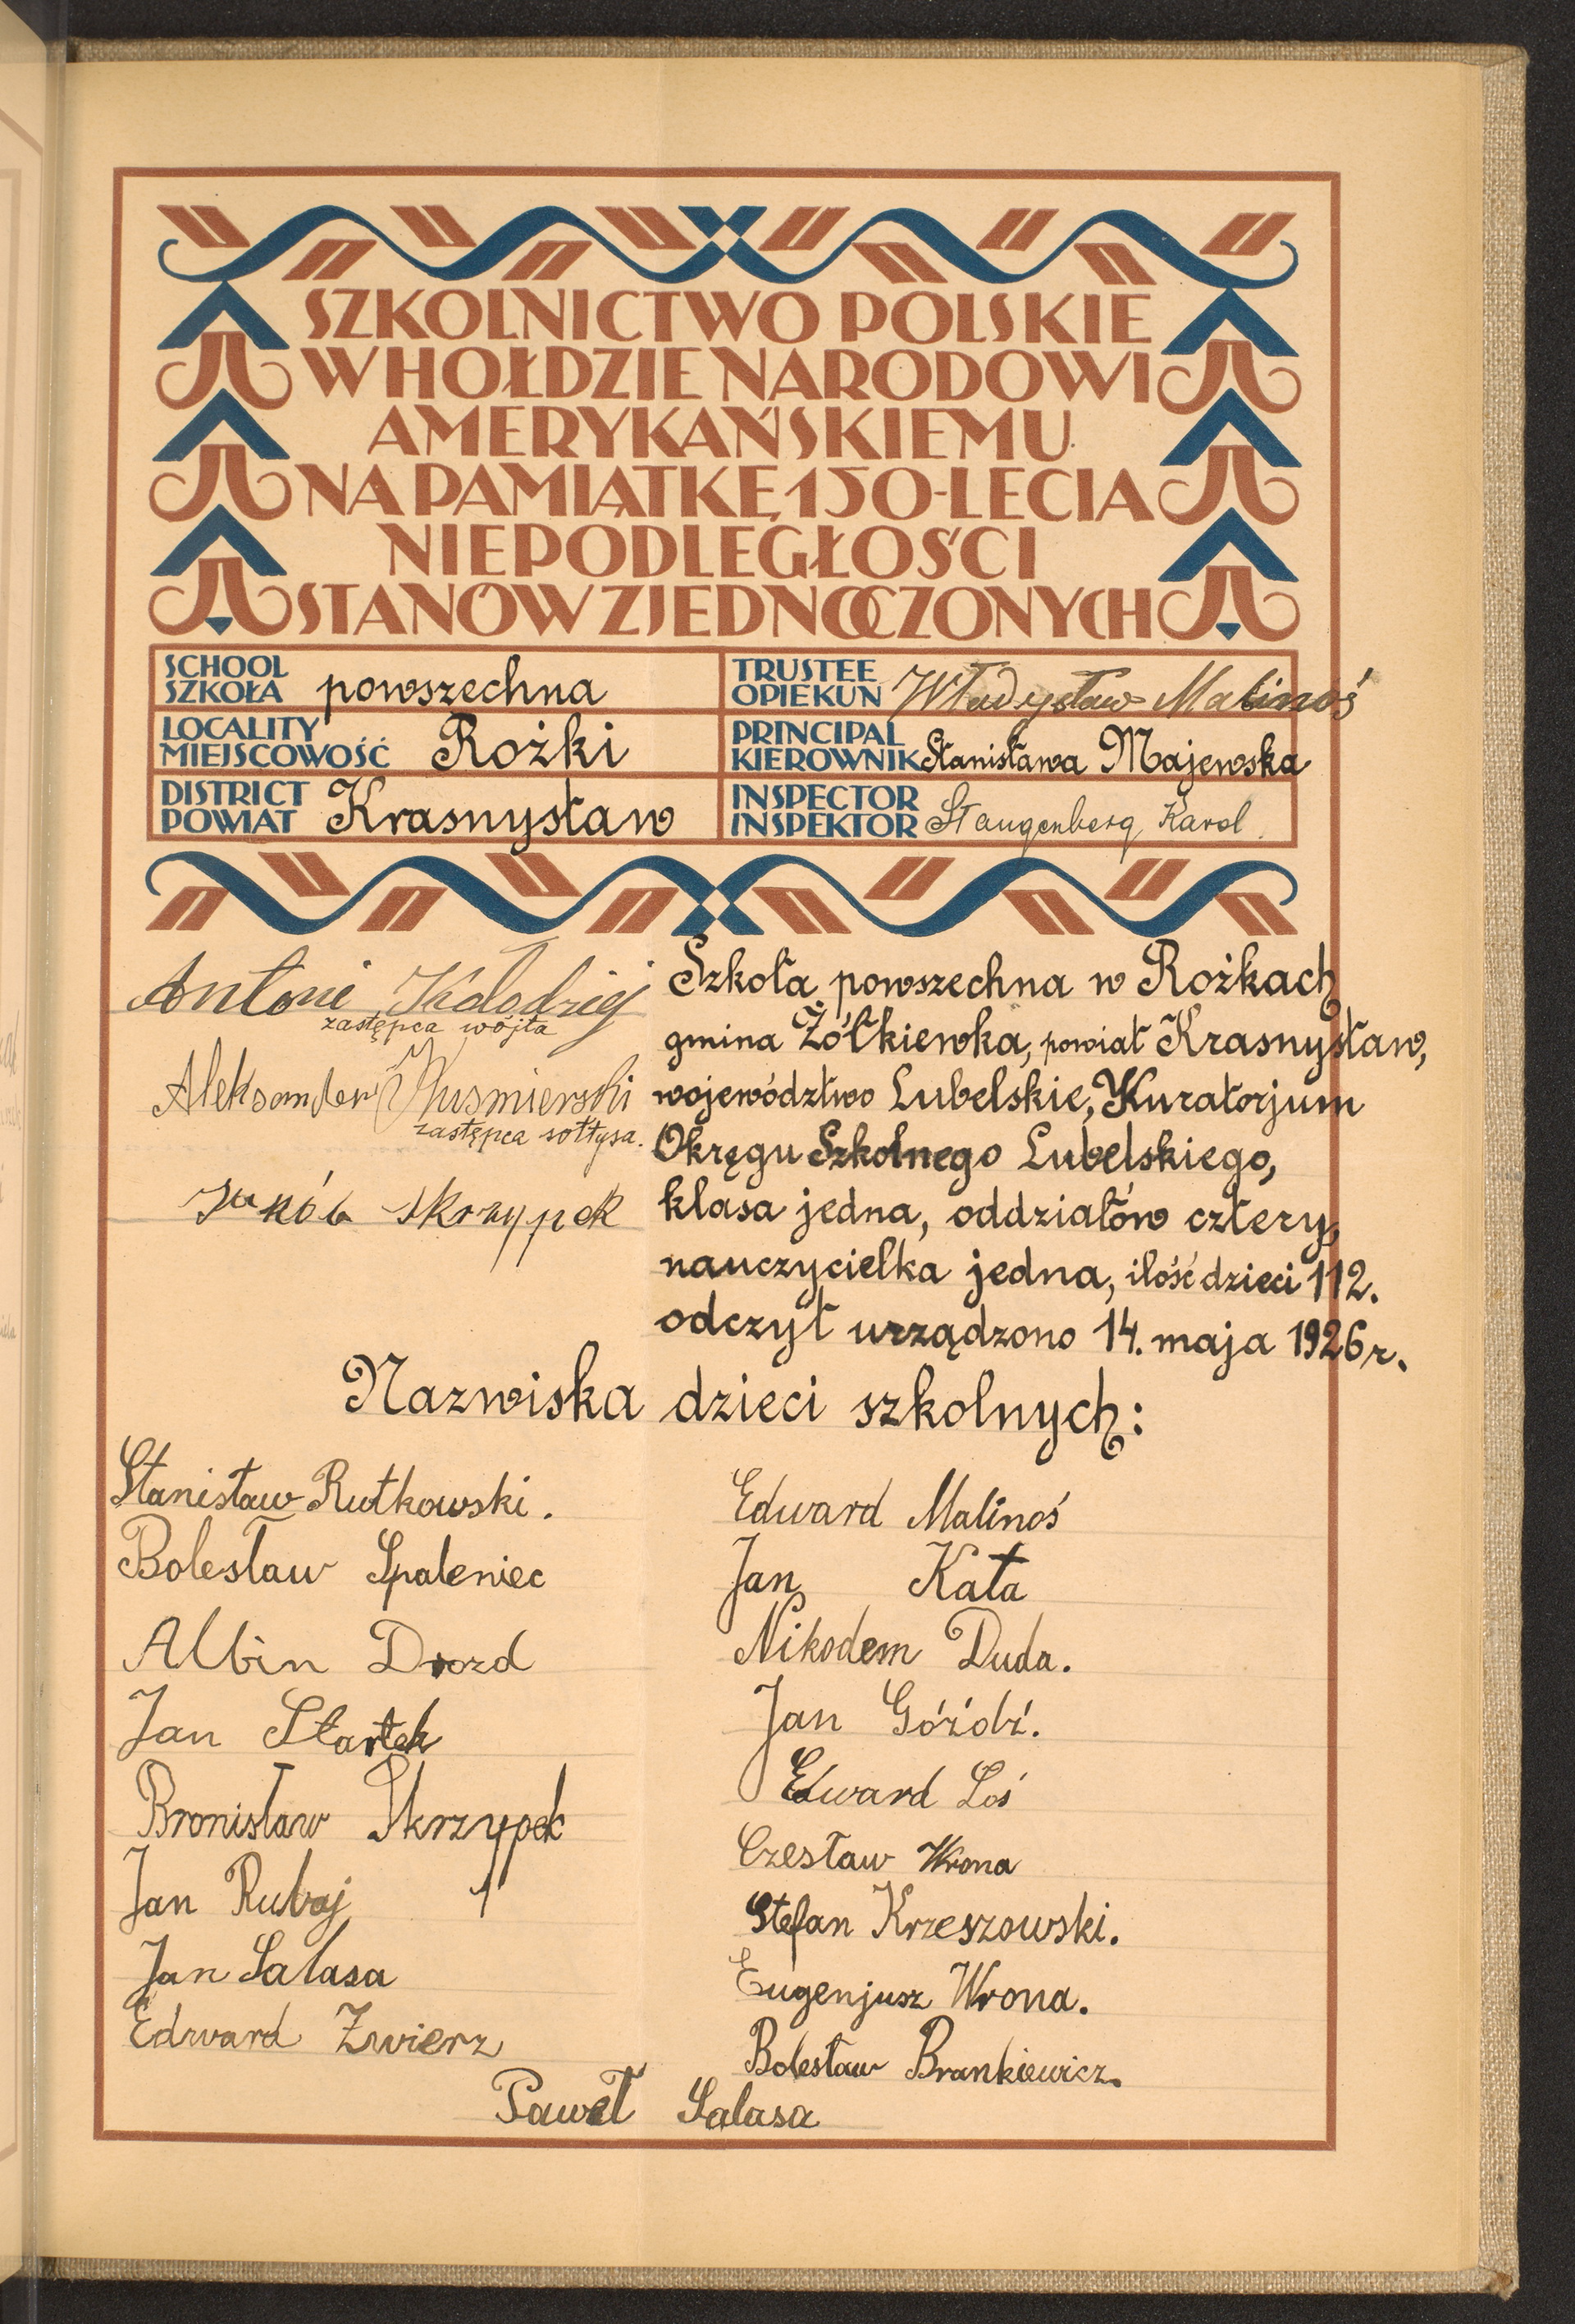 SZKOLNICTWO POLSKIE
W HOŁDZIE NARODOWI
AMERYKAŃSKIEMU
NA PAMIĄTKĘ 150-LECIA
NIEPODLEGŁOŚCI
STANÓW ZJEDNOCZONYCH
SCHOOL
SZKOŁA powszechna
TRUSTEE
OPIEKUN Władysław Malinoś
LOCALITY
MIEJSCOWOŚĆ Rożki
PRINCIPAL
KIEROWNIK Stanisława Majewska
DISTRICT
POWIAT Krasnystaw
INSPECTOR
INSPEKTOR Stangenberg Karol
Antoni Kołodziej
zastępca wójta
Aleksander Kuśmierski
zastępca sołtysa.
Jakób Skrzypek
Szkoła powszechna w Rożkach
gmina Żółkiewka, powiat Krasnystaw,
województwo Lubelskie, Kuratorjum
Okręgu Szkolnego Lubelskiego,
klasa jedna, oddziałów cztery,
nauczycielka jedna, ilość dzieci 112.
odczyt urządzono 14. maja 1926 r.
Nazwiska dzieci szkolnych:
Stanisław Rutkowski.
Bolesław Spaleniec
Albin Drozd
Jan Startek
Bronisław Skrzypek
Jan Rubaj
Jan Sałasa
Edward Zwierz
Edward Malinoś
Jan Kata
Nikodem Duda.
Jan Góźdź.
Edward Łoś
Czesław Wrona
Stefan Krzeszowski.
Eugenjusz Wrona.
Bolesław Brankiewicz.
Paweł Sałasa